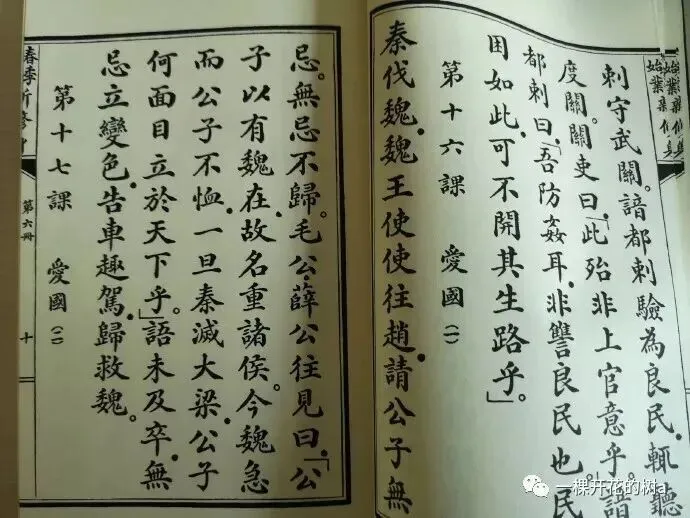 刺守武關。諳都刺驗為良民，輒聽
度關。關吏曰：「此殆非上官意乎。」諳
都刺曰：「吾防姦耳，非讐良民也。民
困如此，可不開其生路乎。」
第十六課　愛國(一)
秦伐魏，魏王使使往趙，請公子無
忌。無忌不歸。毛公、薛公往見曰：「公
子以有魏在，故名重諸侯。今魏急
而公子不恤，一旦秦滅大梁，公子
何面目立於天下乎。」語未及卒，無
忌立變色，告車趣駕，歸救魏。
第十七課　愛國(二)
第六冊
十
一棵开花的树a